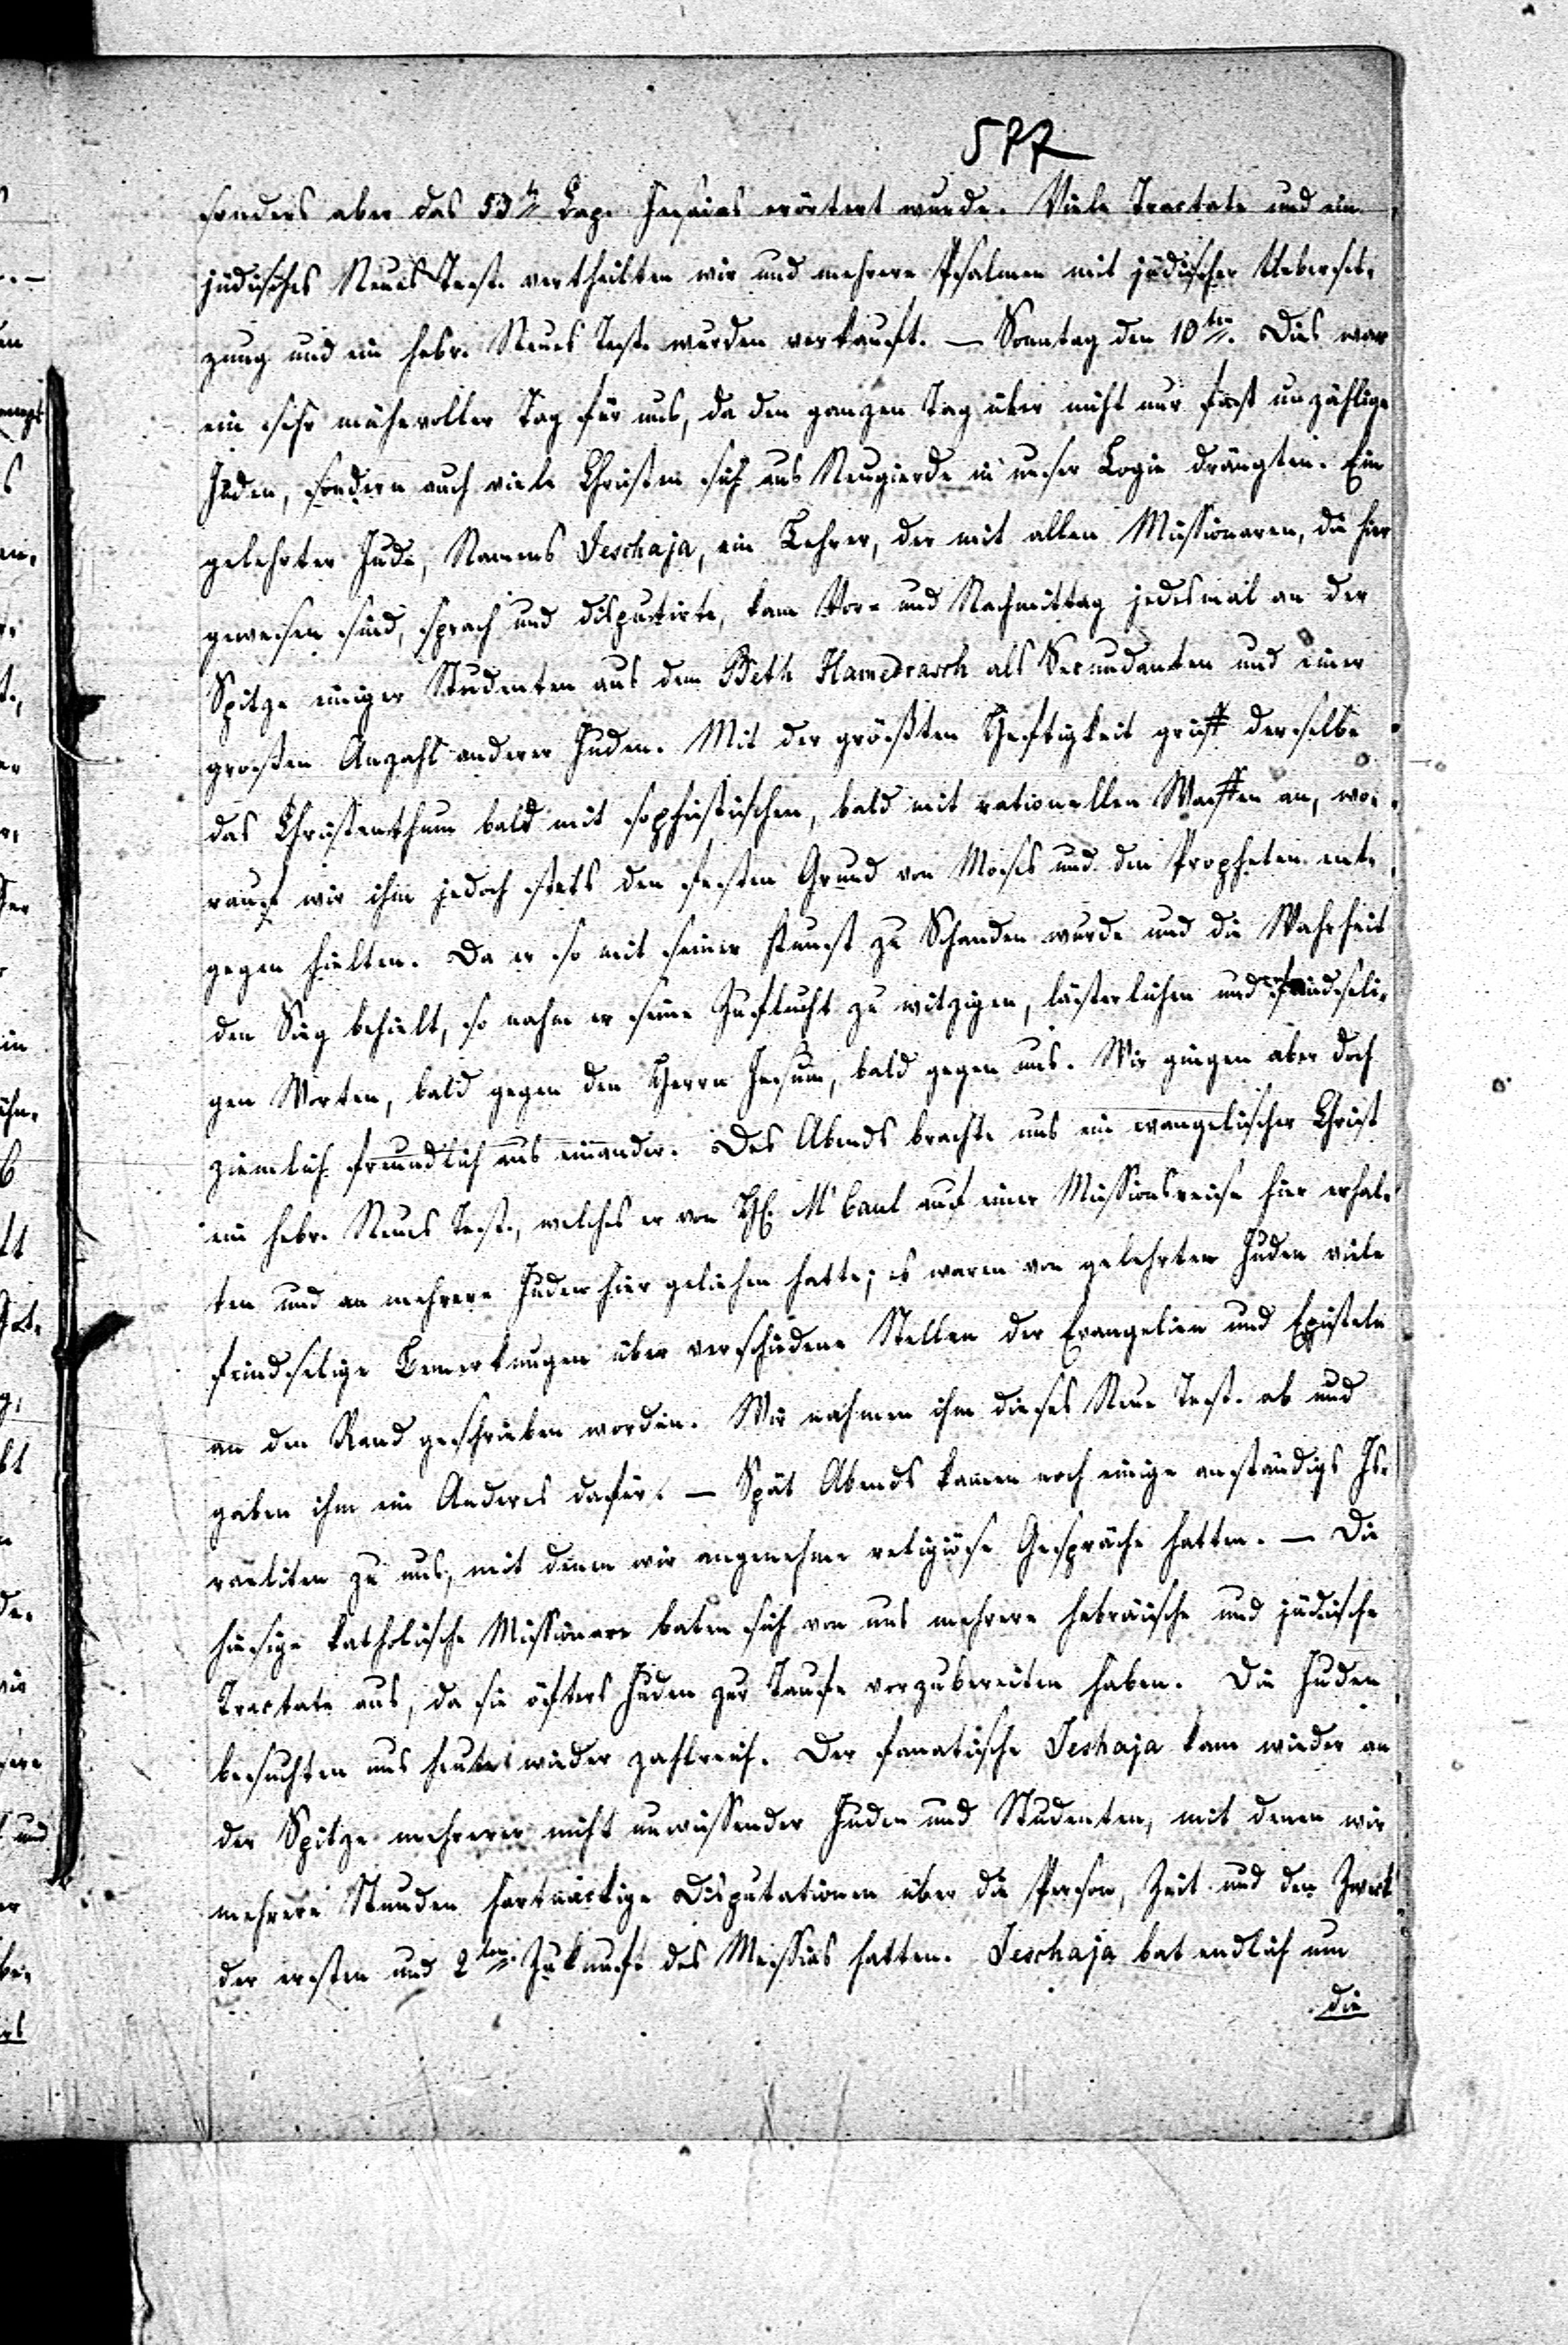 577
sonders aber das 53te Cap. Jesaias erörtert wurde. Viele Tractate und ein
jüdisches Neues Test. vertheilten wir und mehrere Psalmen mit jüdischer Ueberset-
zung und ein hebr. Neues Test. wurden verkauft. — Sonntag den 10ten. Dies war
ein sehr mühevoller Tag für uns, da den ganzen Tag über nicht nur fast unzählige
Juden, sondern auch viele Christen sich aus Neugierde in unser Logie drängten. Ein
gelehrter Jude, Namens Jeschaja, ein Lehrer, der mit allen Missionaren, die hier
gewesen sind, sprach und disputirte, kam Vor- und Nachmittag jedesmal an der
Spitze einiger Studenten aus dem Beth Hamedrasch als Secundanten und einer
großen Anzahl anderer Juden. Mit der größten Heftigkeit griff derselbe
das Christenthum bald mit sophistischen, bald mit rationellen Waffen an, wo-
rauf wir ihm jedoch stets den festen Grund von Moses und den Propheten ent-
gegen hielten. Da er so mit seiner Kunst zu Schanden wurde und die Wahrheit
den Sieg behielt, so nahm er seine Zuflucht zu witzigen, lästerlichen und feindseli-
gen Worten, bald gegen den Herrn Jesum, bald gegen uns. Wir gingen aber doch
ziemlich freundlich aus einander. Des Abends brachte uns ein evangelischer Christ
ein hebr. Neues Test., welches er von H. McCaul auf einer Missionsreise hier erhal-
ten und an mehrere Juden hier geliehen hatte; es waren von gelehrten Juden viele
feindselige Bemerkungen über verschiedene Stellen der Evangelien und Episteln
an den Rand geschrieben worden. Wir nahmen ihm dieses Neue Test. ab und
gaben ihm ein Anderes dafür. — Spät Abends kamen noch einige anständige Is-
raeliten zu uns, mit denen wir angenehme religiöse Gespräche hatten. — Die
hiesige katholische Missionare baten sich von uns mehrere hebräische und jüdische
Tractate aus, da sie öfters Juden zur Taufe vorzubereiten haben. Die Juden
besuchten uns heute wieder zahlreich. Der fanatische Jeshaja kam wieder an
der Spitze mehrerer nicht unwissender Juden und Studenten, mit denen wir
mehrere Stunden hartnäckige Disputationen über die Person, Zeit und den Zweck
der ersten und 2ten Zukunft des Messias hatten. Jeschaja bat endlich um
die